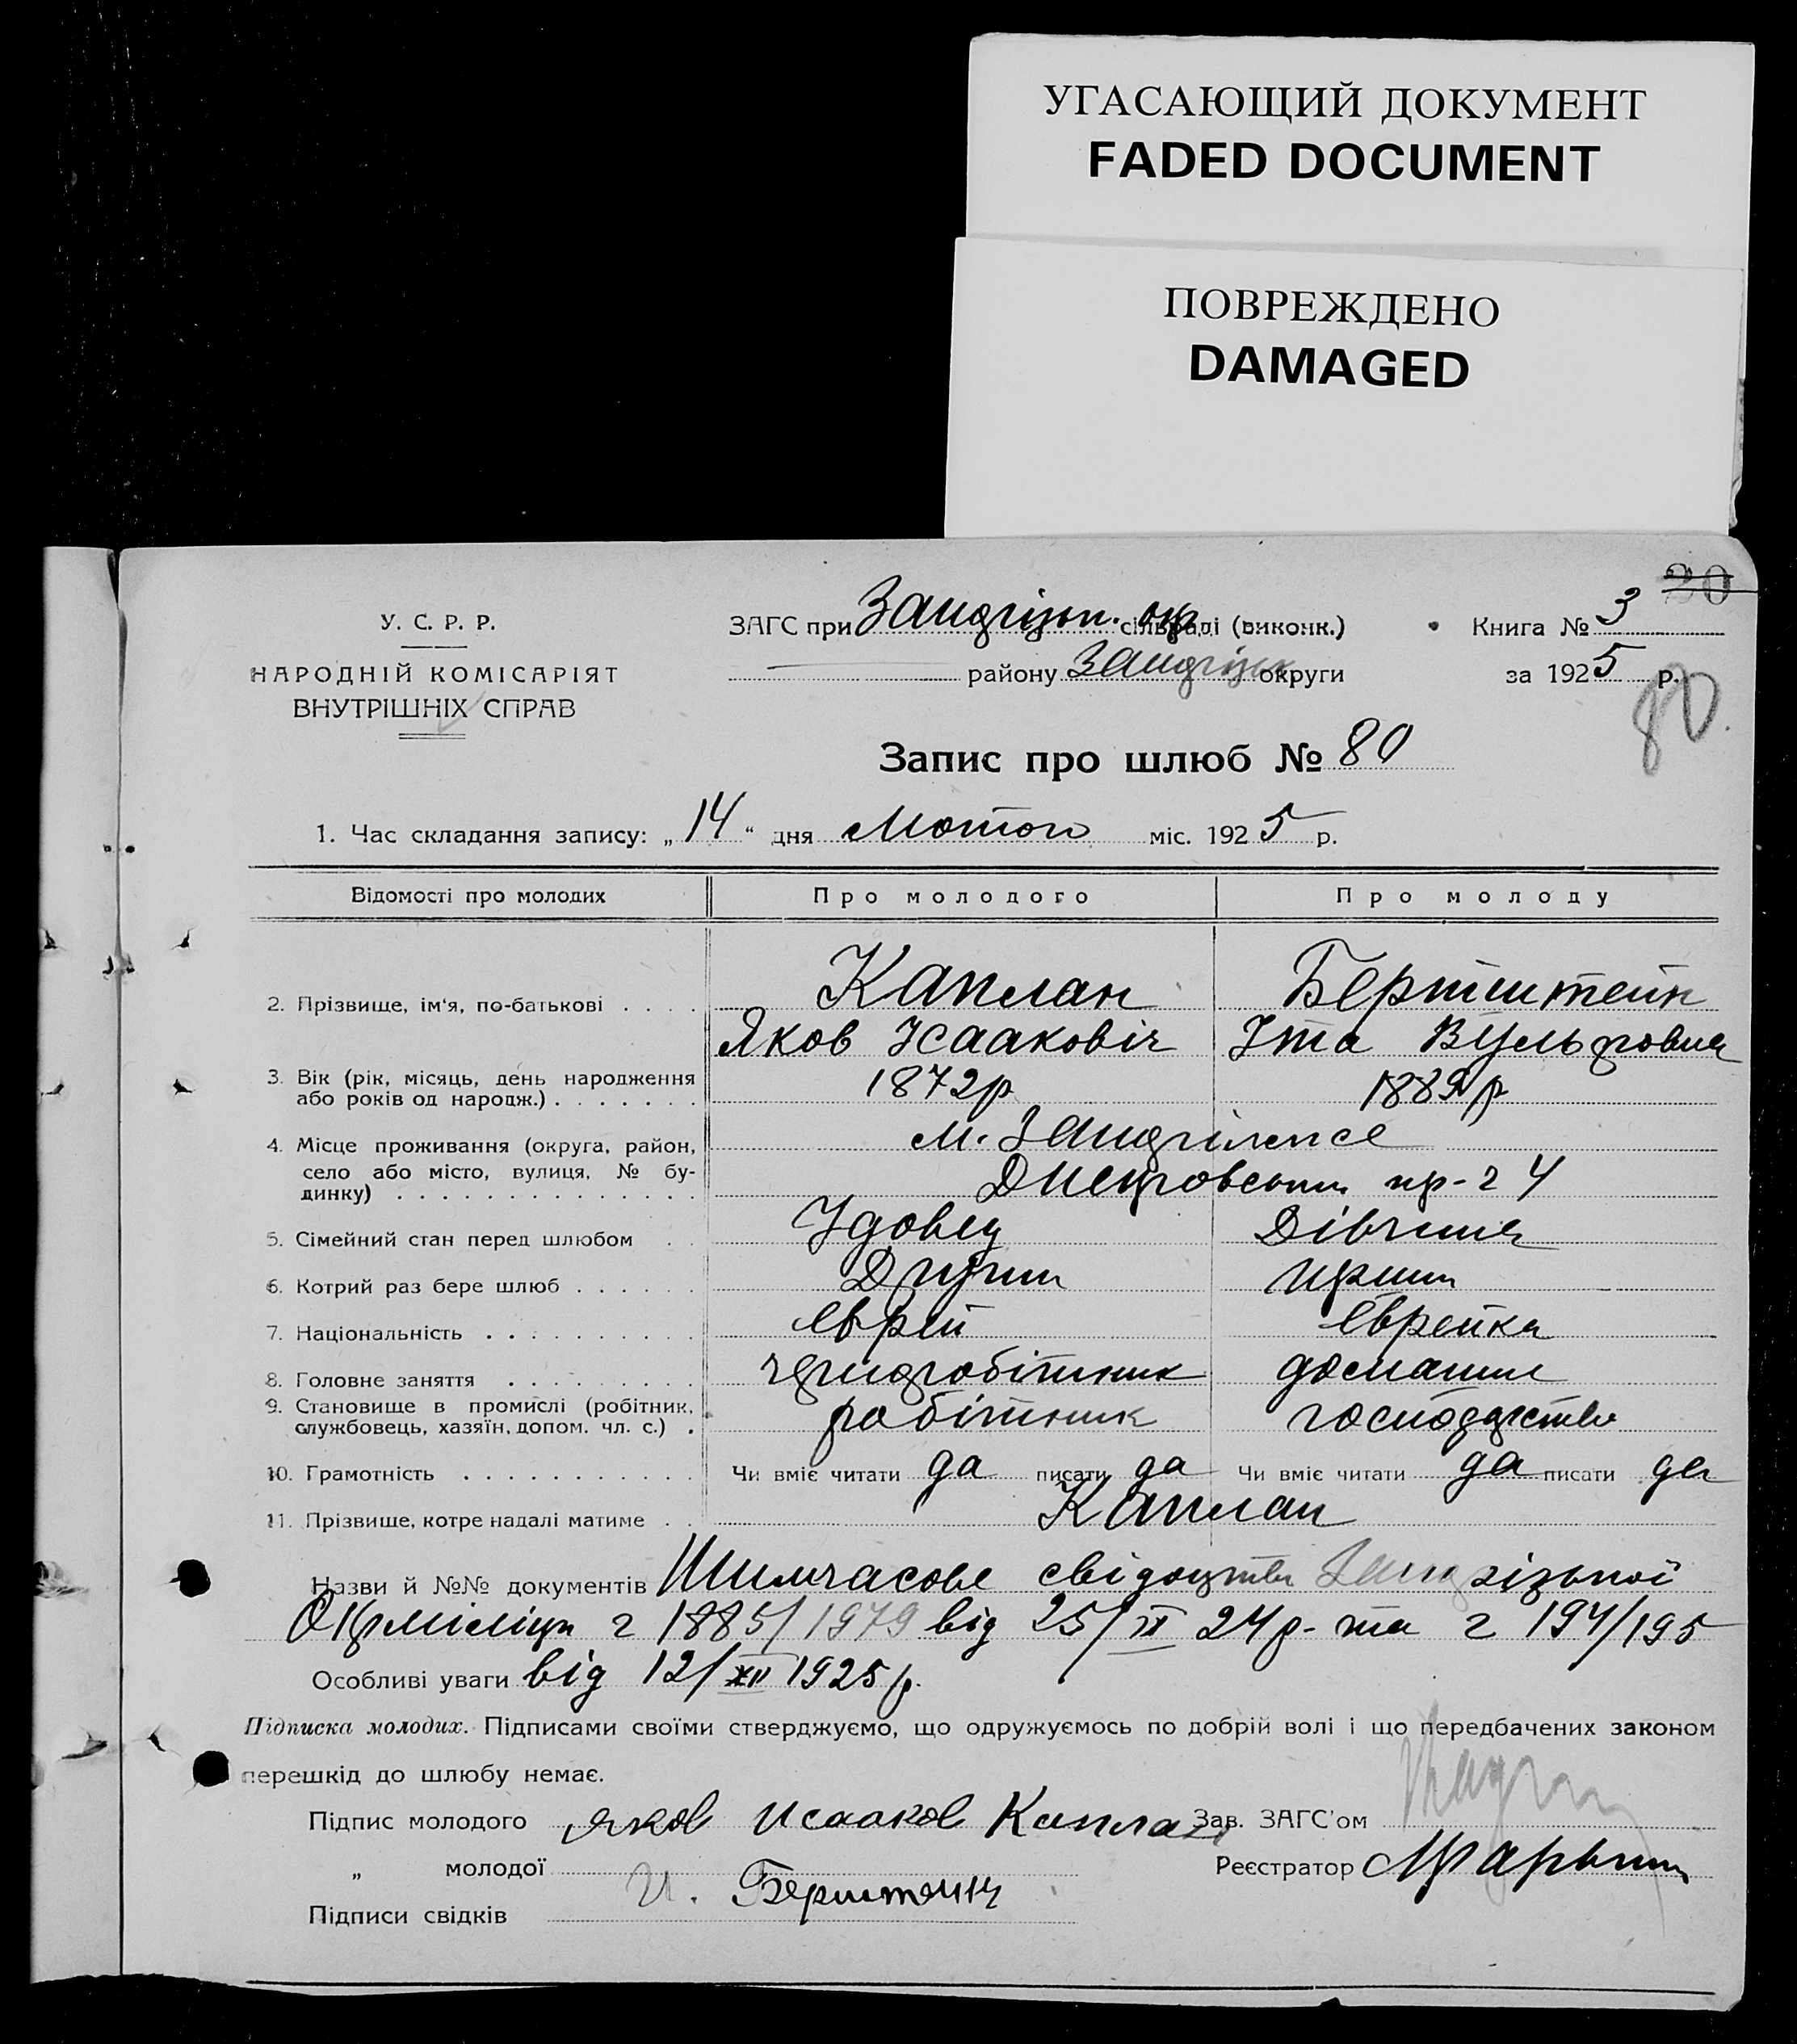 УГАСАЮЩИЙ ДОКУМЕНТ
FADED DOCUMENT
ПОВРЕЖДЕНО
DAMAGED
20
У. С. Р. Р.
НАРОДНІЙ КОМІСАРІЯТ
ВНУТРІШНІХ СПРАВ
ЗАГС при сільраді (виконк.)
району округи
Книга № 3
за 1925 р.
80.
Запис про шлюб № 80
1. Час складання запису: „14“ дня Лютого міс. 1925 р.
Відомості про молодих Про молодого Про молоду
2. Прізвище, ім'я, по-батькові . . . . Каплан Бернштейн
Яков Ісааковіч Іта Вульфовна
3. Вік (рік, місяць, день народження
або років од народж.) . . . . . . . 1872р 1889р
4. Місце проживання (округа, район,
село або місто, вулиця, № бу-
динку) . . . . . . . . . . . . . . м.
пр- 4
5. Сімейний стан перед шлюбом . . Удовец Дівчина
6. Котрий раз бере шлюб . . . . . . Другий
7. Національність . . . . . . . . . . еврей еврейка
8. Головне заняття . . . . . . . . . чернороб̀ітник домашнє
9. Становище в промислі (робітник,
службовець, хазяїн, допом. чл. с.) . робітник господарство
10. Грамотність . . . . . . . . . . . Чи вміє читати да писати да Чи вміє читати да писати да
11. Прізвище, котре надалі матиме . . Каплан
Назви й №№ документів Тимчасове свідоцтво
Окрміліції 1885/1979 від 25/ 24р. та 194/195
Особливі уваги від 12/XII 1925р.
Підписка молодих. Підписами своїми стверджуємо, що одружуємось по добрій волі і що передбачених законом
перешкід до шлюбу немає.
Підпис молодого Яков Исааков Каплан Зав. ЗАГС'ом
„ молодої Реєстратор
И. Бернштейн
Підписи свідків